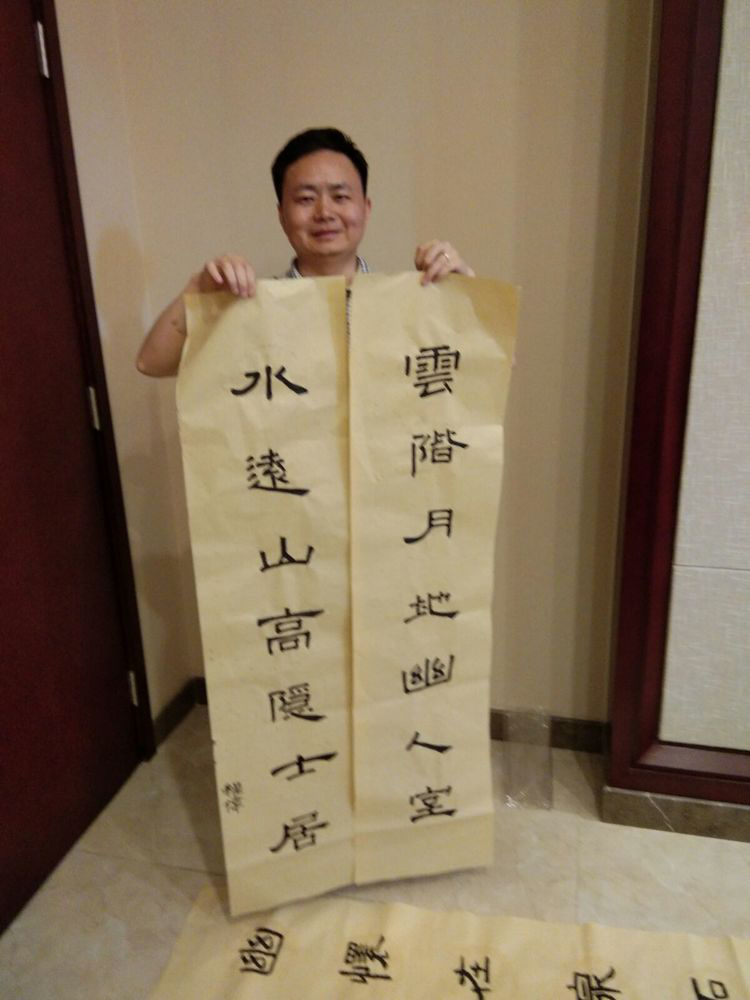 雲階月地幽人室
水遠山高隱士居
幽懷在泉石